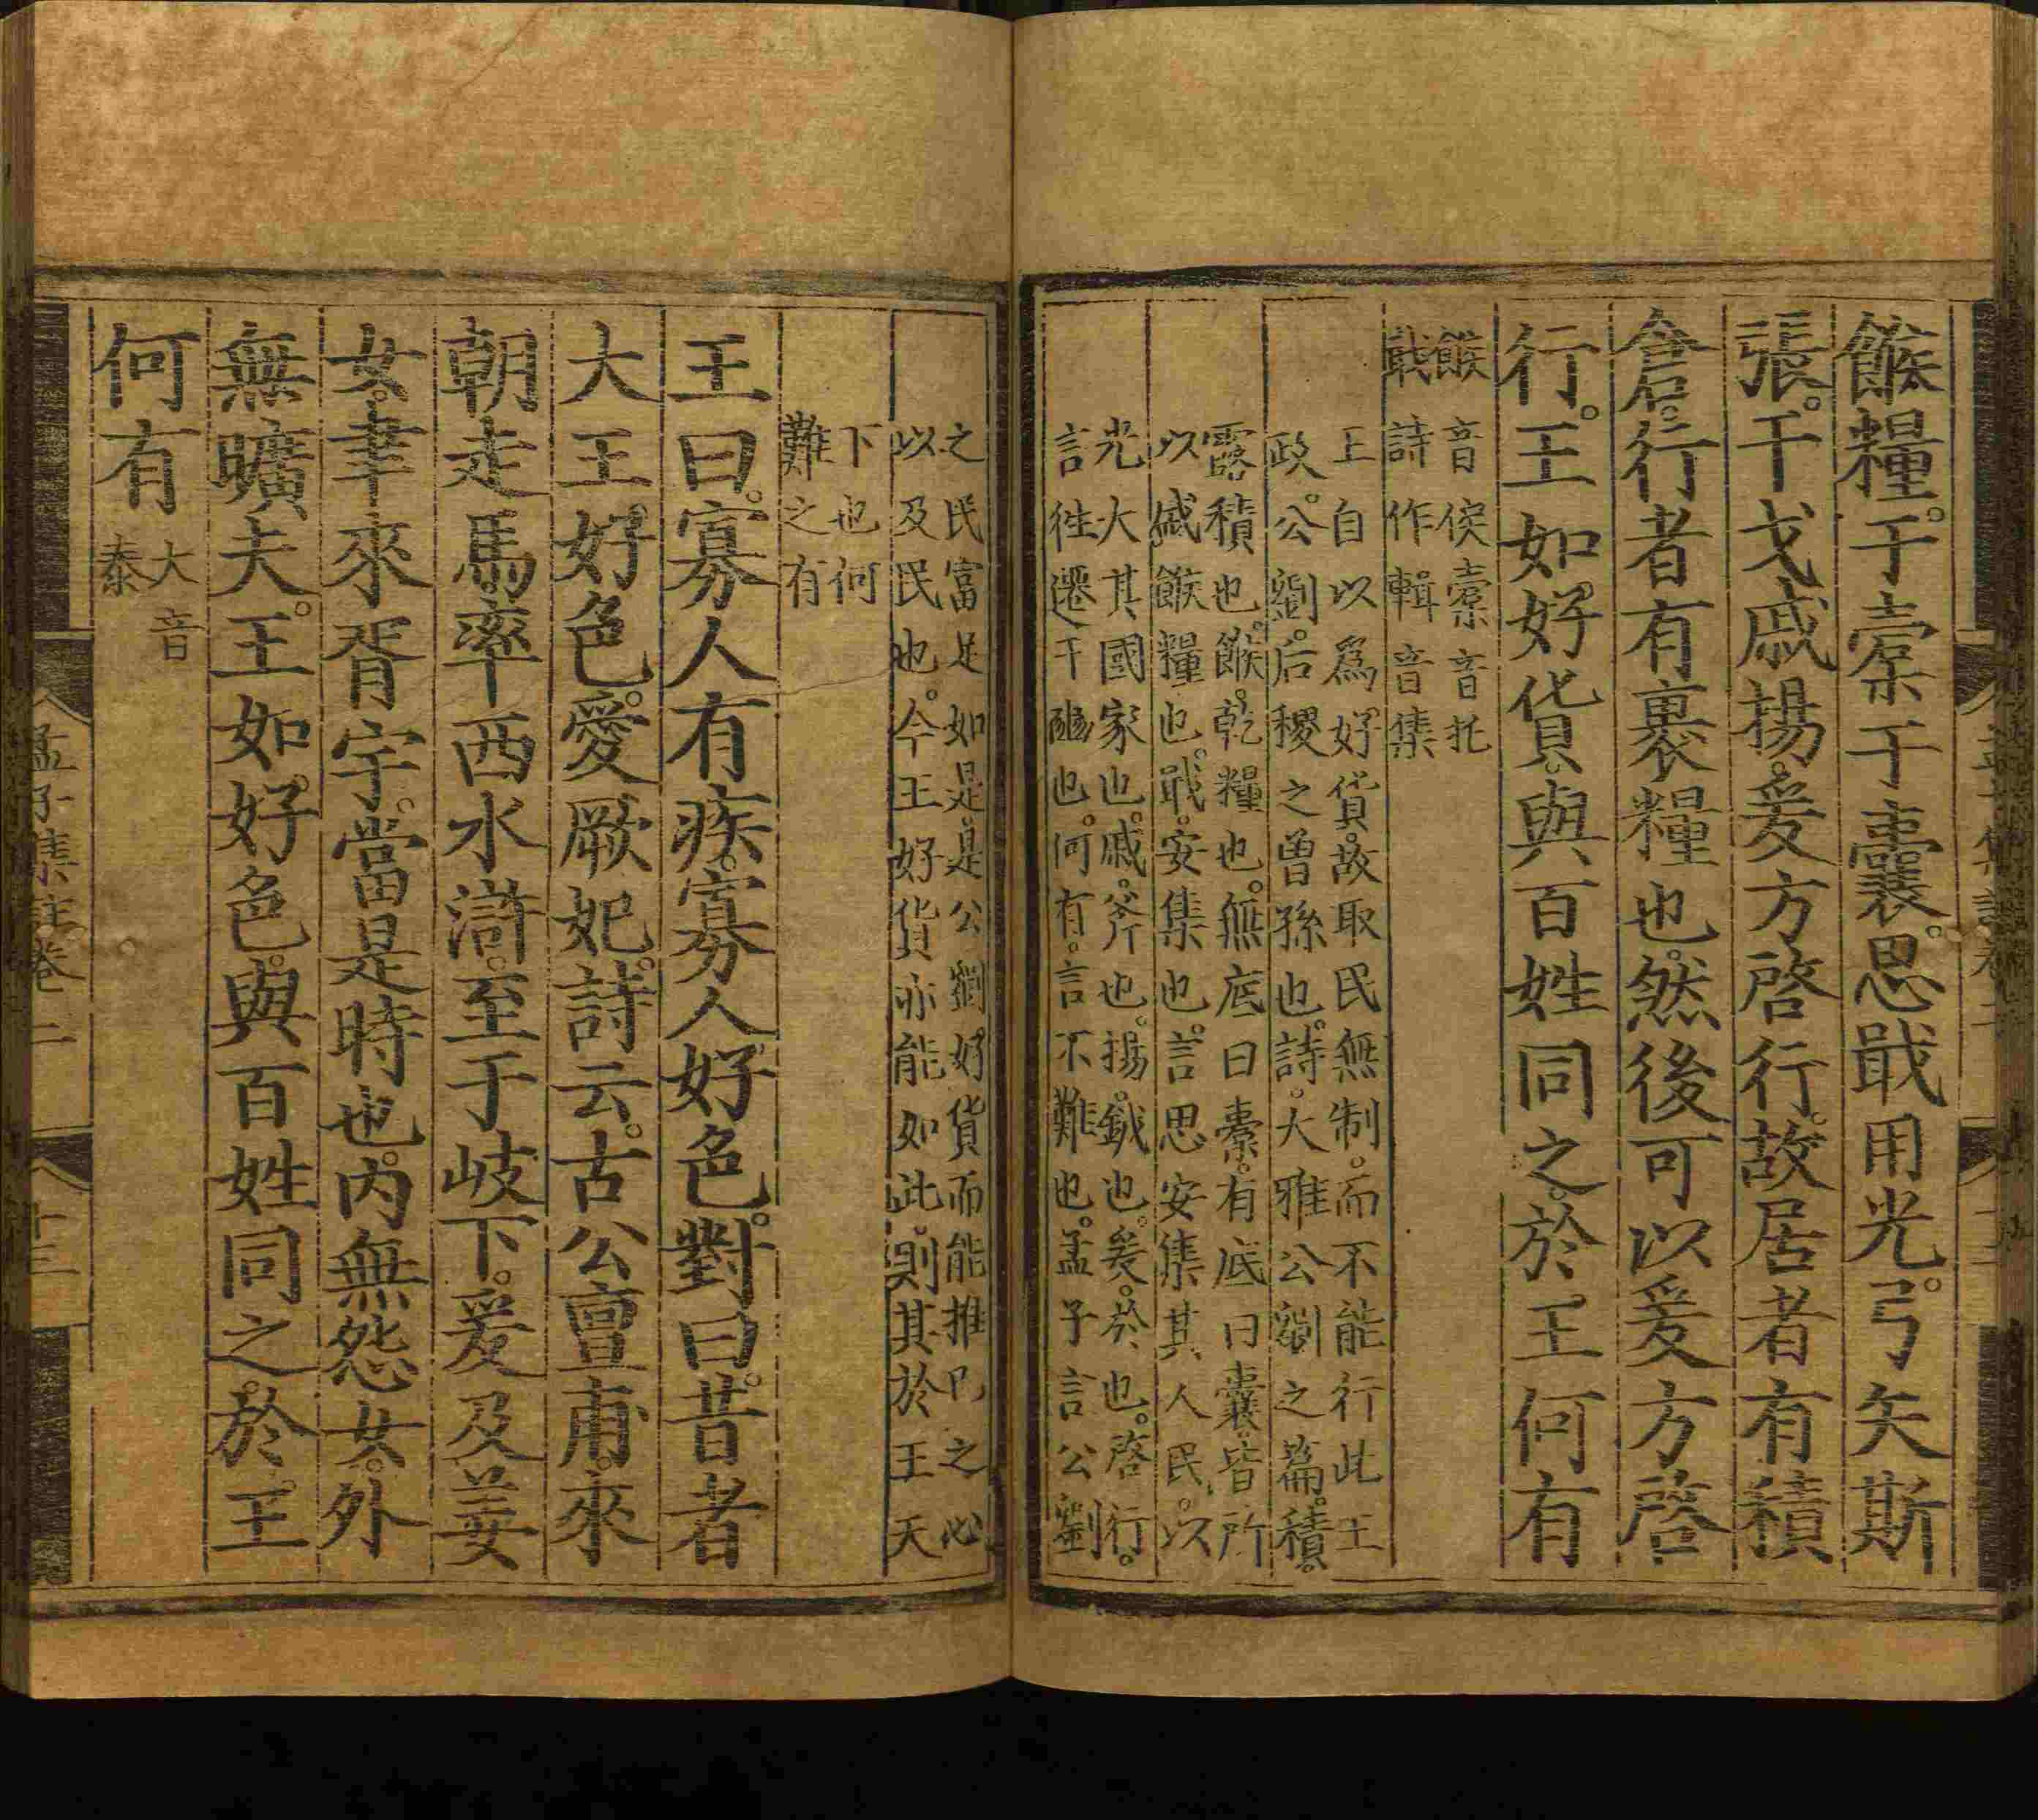 餱糧。于橐于囊。思戢用光。弓矢斯
張。干戈戚揚。爰方啓行。故居者有積
倉。行者有裹糧也。然後可以爰方啓
行。王如好貨。與百姓同之。於王何有
餱音侯橐音托
戢詩作輯音集
王自以爲好貨。故取民無制。而不能行此王
政。公劉。后稷之曾孫也。詩。大雅公劉之篇。積。
露積也。餱。乾糧也。無底曰橐。有底曰囊。皆所
以盛餱糧也。戢。安集也。言思安集其人民。以
光大其國家也。戚。斧也。揚。鉞也。爰。於也。啓行。
言往遷于豳也。何有。言不難也。孟子言公劉
之民富足如是。是公劉好貨而能推己之心
以及民也。今王好貨亦能如此。則其於王天
下也何
難之有
王曰。寡人有疾。寡人好色。對曰。昔者
大王好色。愛厥妃。詩云。古公亶甫。來
朝走馬。率西水滸。至于岐下。爰及姜
女。聿來胥宇。當是時也。內無怨女。外
無曠夫。王如好色。與百姓同之。於王
何有
大音
泰
孟子集註卷二
十三